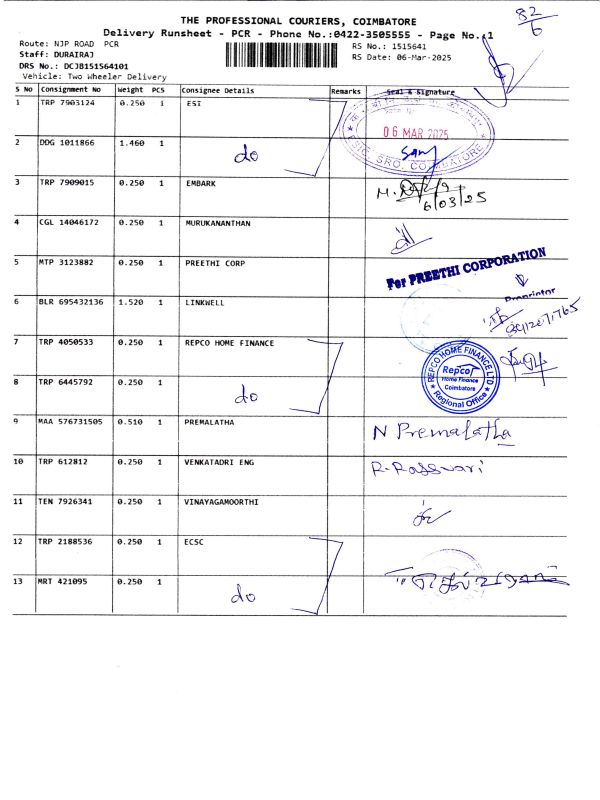 82
6
THE PROFESSIONAL COURIERS, COIMBATORE
Delivery Runsheet - PCR - Phone No.:0422-3505555 - Page No.:1
Route: NJP ROAD PCR
RS No.: 1515641
Staff: DURAIRAJ
RS Date: 06-Mar-2025
DRS No.: DCJB151564101
Vehicle: Two Wheeler Delivery
S No Consignment No Weight PCS Consignee Details Remarks Seal & Signature
1 TRP 7903124 0.250 1 ESI
06 MAR 2025
2 DDG 1011866 1.460 1 do
SRO, COIMBATORE
3 TRP 7909015 0.250 1 EMBARK
6/03/25
4 CGL 14046172 0.250 1 MURUKANANTHAN
5 MTP 3123882 0.250 1 PREETHI CORP
For PREETHI CORPORATION
Proprietor
6 BLR 695432136 1.520 1 LINKWELL
7 TRP 4050533 0.250 1 REPCO HOME FINANCE
REPCO HOME FINANCE LTD
Repco
Home Finance
Coimbatore
Regional Office
8 TRP 6445792 0.250 1 do
9 MAA 576731505 0.510 1 PREMALATHA N Premalatha
10 TRP 612812 0.250 1 VENKATADRI ENG
11 TEN 7926341 0.250 1 VINAYAGAMOORTHI
12 TRP 2188536 0.250 1 ECSC
13 MRT 421095 0.250 1 do